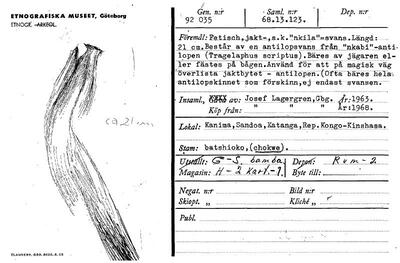 ETNOGRAFISKA MUSEET, Göteborg
ETNOGR. -ARKEOL.
ca 21 cm
Gen. n:r
92 035
Saml. n:r
68.13.123.
Dep. n:r
Föremål: Fetisch,jakt-,s.k."nkila"=svans.Längd:
21 cm.Består av en antilopsvans från "nkabi"-anti
lopen (Tragelaphus scriptus). Bäres av jägaren el
ler fästes på bågen.Använd för att på magisk väg
överlista jaktbytet - antilopen.(Ofta bäres hela
antilopskinnet som förskinn,ej endast svansen.
Insaml, av: Josef Lagergren,Gbg. År:1963.
Köp från: " År:1968.
Lokal: Kanima,Sandoa,Katanga,Rep.Kongo-Kinshasa.
Stam: batshioko,(chokwe).
Utställt: G-S. bamba Depon: Rum-2.
Magasin: H-2 Kart.-1. Byte till:
Negat. n:r
Bild n:r
Skiopt. "
Kliché "
Publ.